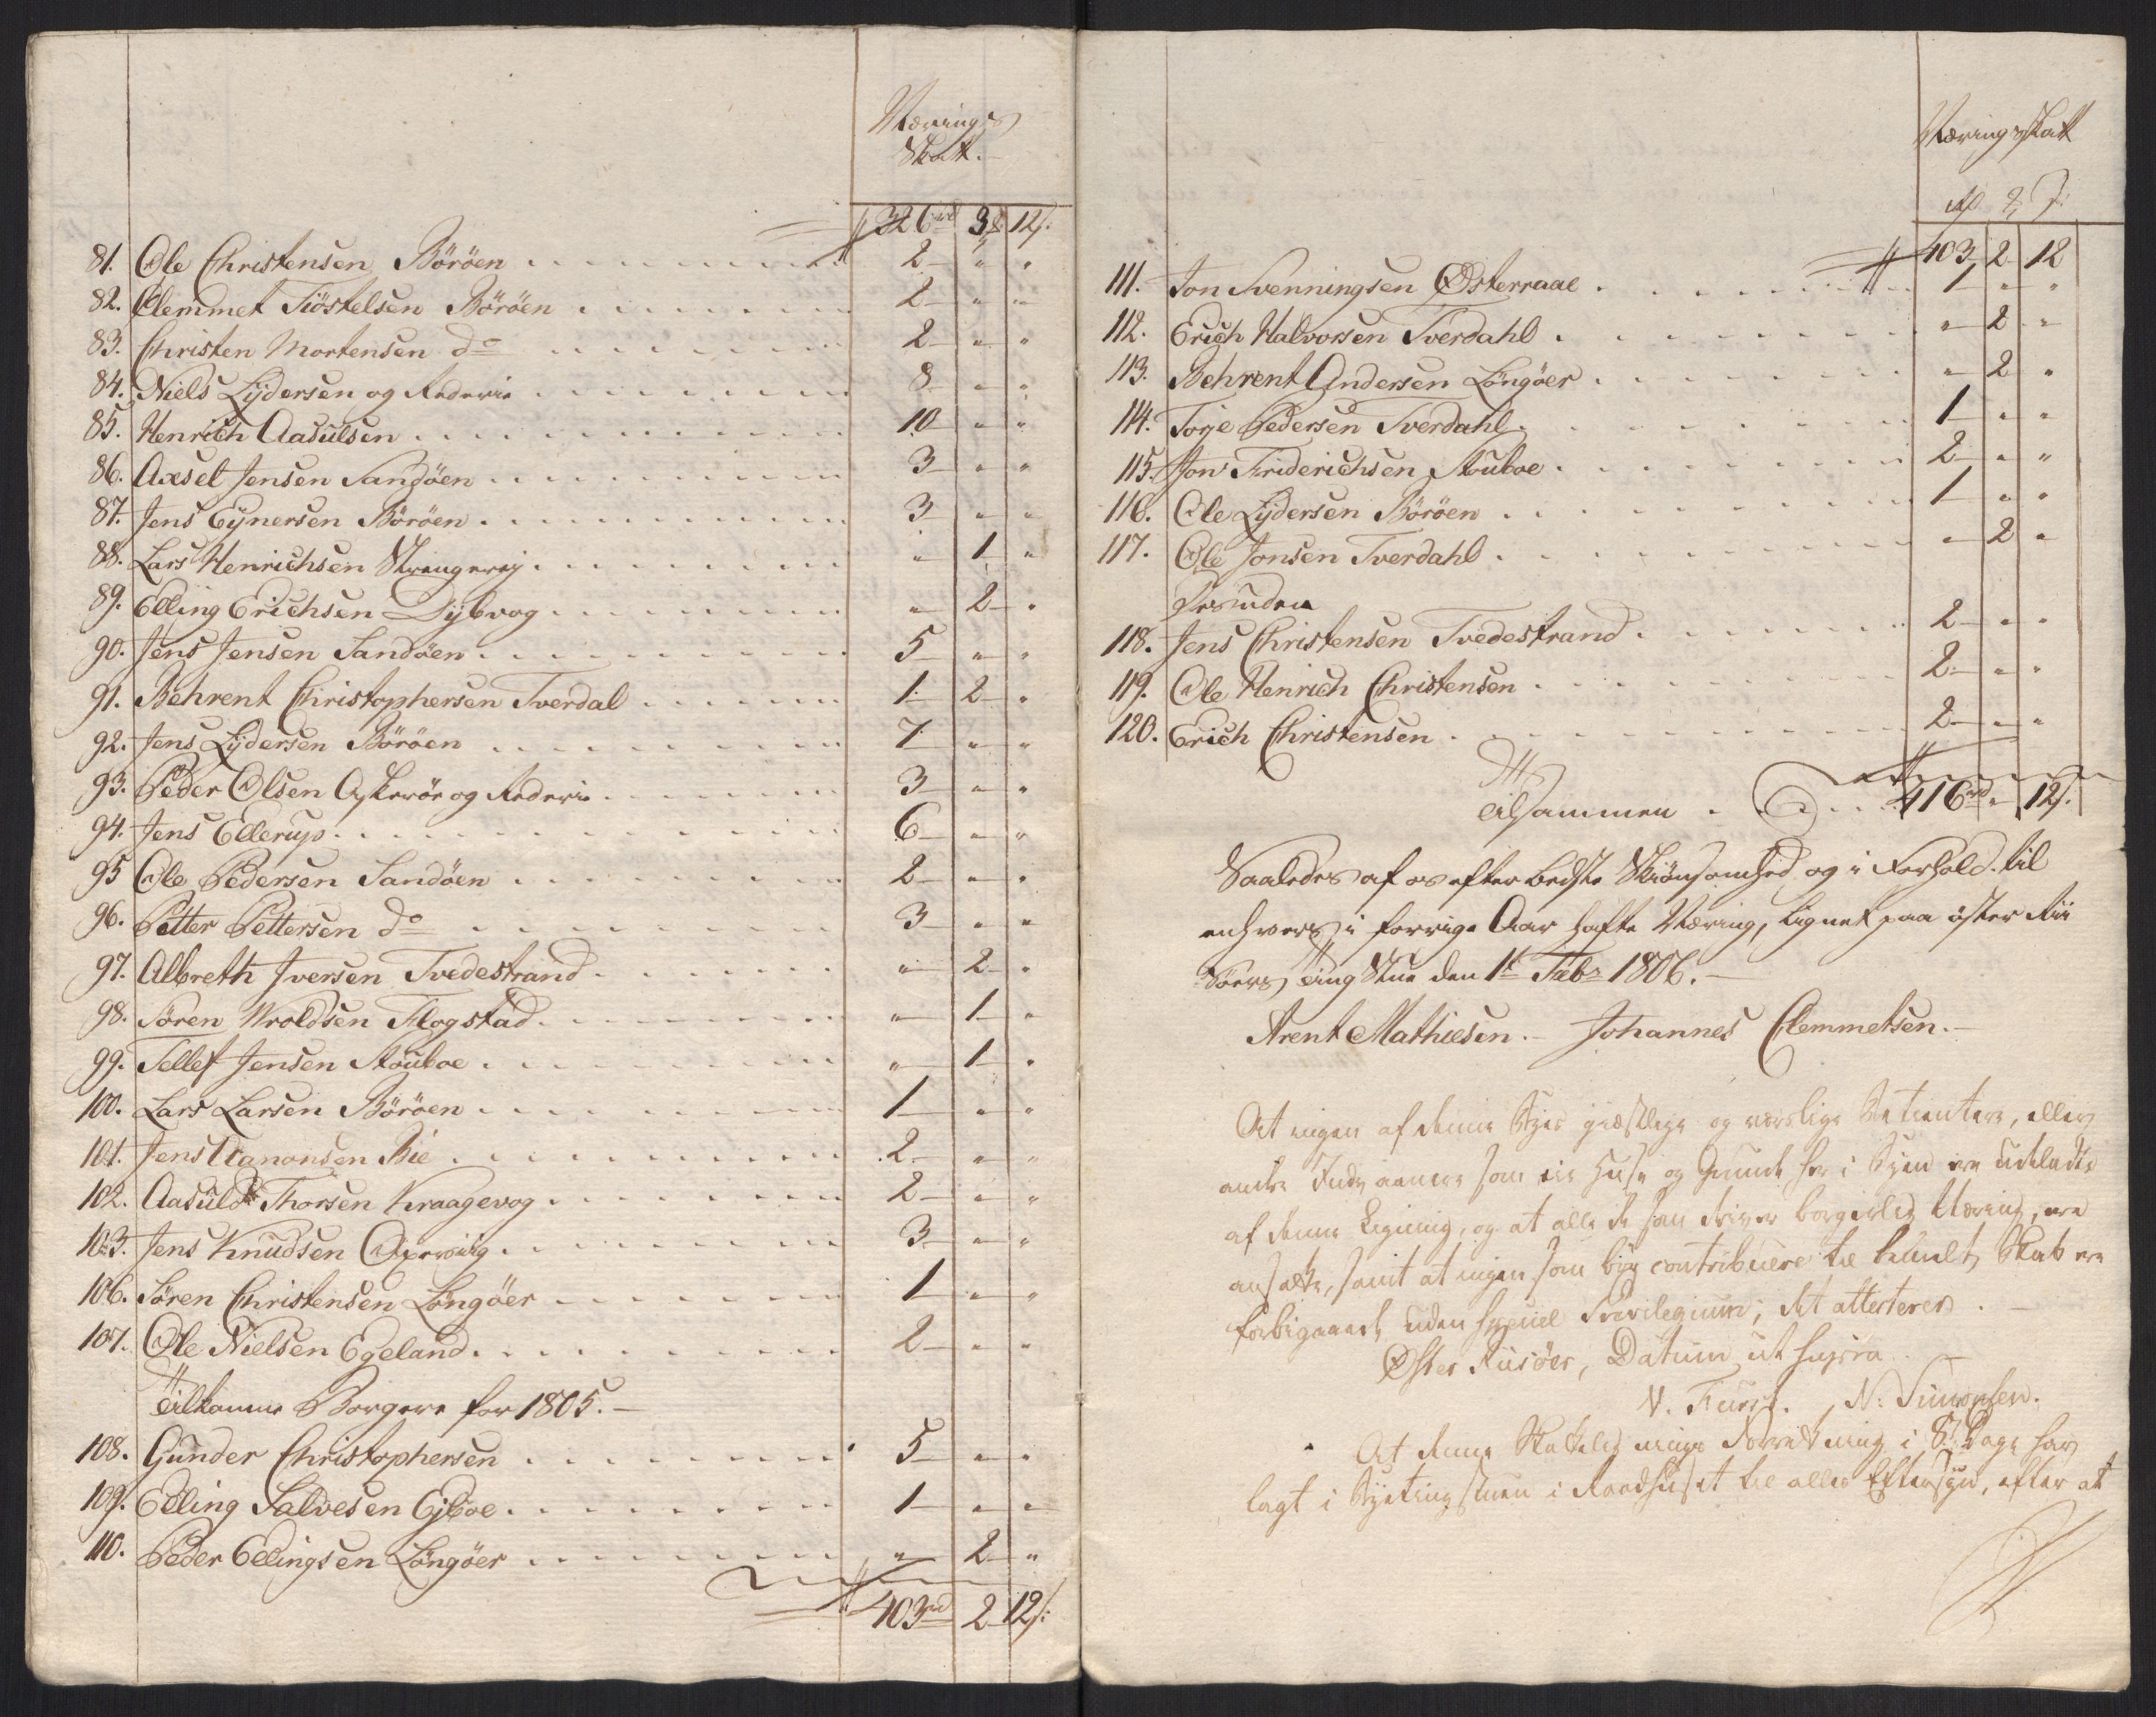 Nærings
Skat.
326rd 3 12s.
81. Ole Christensen Böröen 2 " "
82. Clemmet Tiöstelsen Böröen 2 " "
83. Christen Mortensen do 2 " "
84. Niels Lydersen og Rederie 8 " "
85. Henrich Aasulsen 10 " "
86. Axsel Jensen Sandöen 3 " "
87. Jens Eynersen Böröen 3 " "
88. Lars Henrichsen " 1 "
89. Elling Erichsen Dybvog " 2 "
90. Jens Jensen Sandöen 5 " "
91. Behrent Christophersen Tverdal 1 2 "
92. Jens Lydersen Böröen 7 " "
93. Peder Olsen Askeröe og Rederie 3 " "
94. Jens Ellerup 6 " "
95 Ole Pedersen Sandöen 2 " "
96. Petter Pettersen do 3 " "
97. Albreth Iversen Tvedestrand " 2 "
98. Sören Wroldsen Flogstad " 1 "
99. Tellef Jensen Stouboe " 1 "
100. Lars Larsen Böröen 1 " "
101. Jens Bie 2 " "
102. Aasuld Thorsen Kraagevog 2 " "
103. Jens Knudsen Oxeviig 3 " "
106. Sören Christensen Löngöer 1 " "
107. Ole Nielsen Egeland 2 " "
Tilkomne Borgere for 1805.
108. Gunder Christophersen 5 " "
109. Elling Salvesen Ejboe 1 " "
110. Peder Ellingsen Löngöer " 2 "
403rd 2 12s:
Næringsskatt
rd
403 2 12
111. Jon Svenningsen Østerraae 1 " "
112. Erich Halvorsen Tverdahl " 2 "
113. Behrent Andersen Löngöer " 2 "
114. Torje Pedersen Tverdahl 1 " "
115. Jon Friderichsen Stouboe 2 " "
116. Ole Lydersen Böröen 1 " "
117. Ole Jonsen Tverdahl " 2 "
Desuden
118. Jens Christensen Tvedestrand 2 " "
119. Ole Henrich Christensen 2 " "
120. Erich Christensen 2 " "
Tilsammen 416rd " 12s.
Saaledes af os efter bedste Skiönsomhed og i Forhold til
enhvers i forrige Aar hafte Næring, lignet paa öster Rii
söers Ting Stue den 1t Febr 1806.
Arent Mathiesen. Johannes Clemmetsen.
At ingen af denne Byes giæstlige og verslige Betientere, eller
andre Indvaanere som eie Huse og Grunde her i Byen ere udeladte
af denne Ligning, og at alle de som driver borgerlig Næring, ere
ansatte, samt at ingen som bör contribuere til bemelte Skat ere
forbigaaet, uden speciel Privilegium; det attesteres.
Øster Riisöer, Datum ut supra
N. Simonsen.
At denne Skatelignings Forretning i 8te Dage har
lagt i Byetingstuen i Raadhuset til alles Eftersyn, efter at